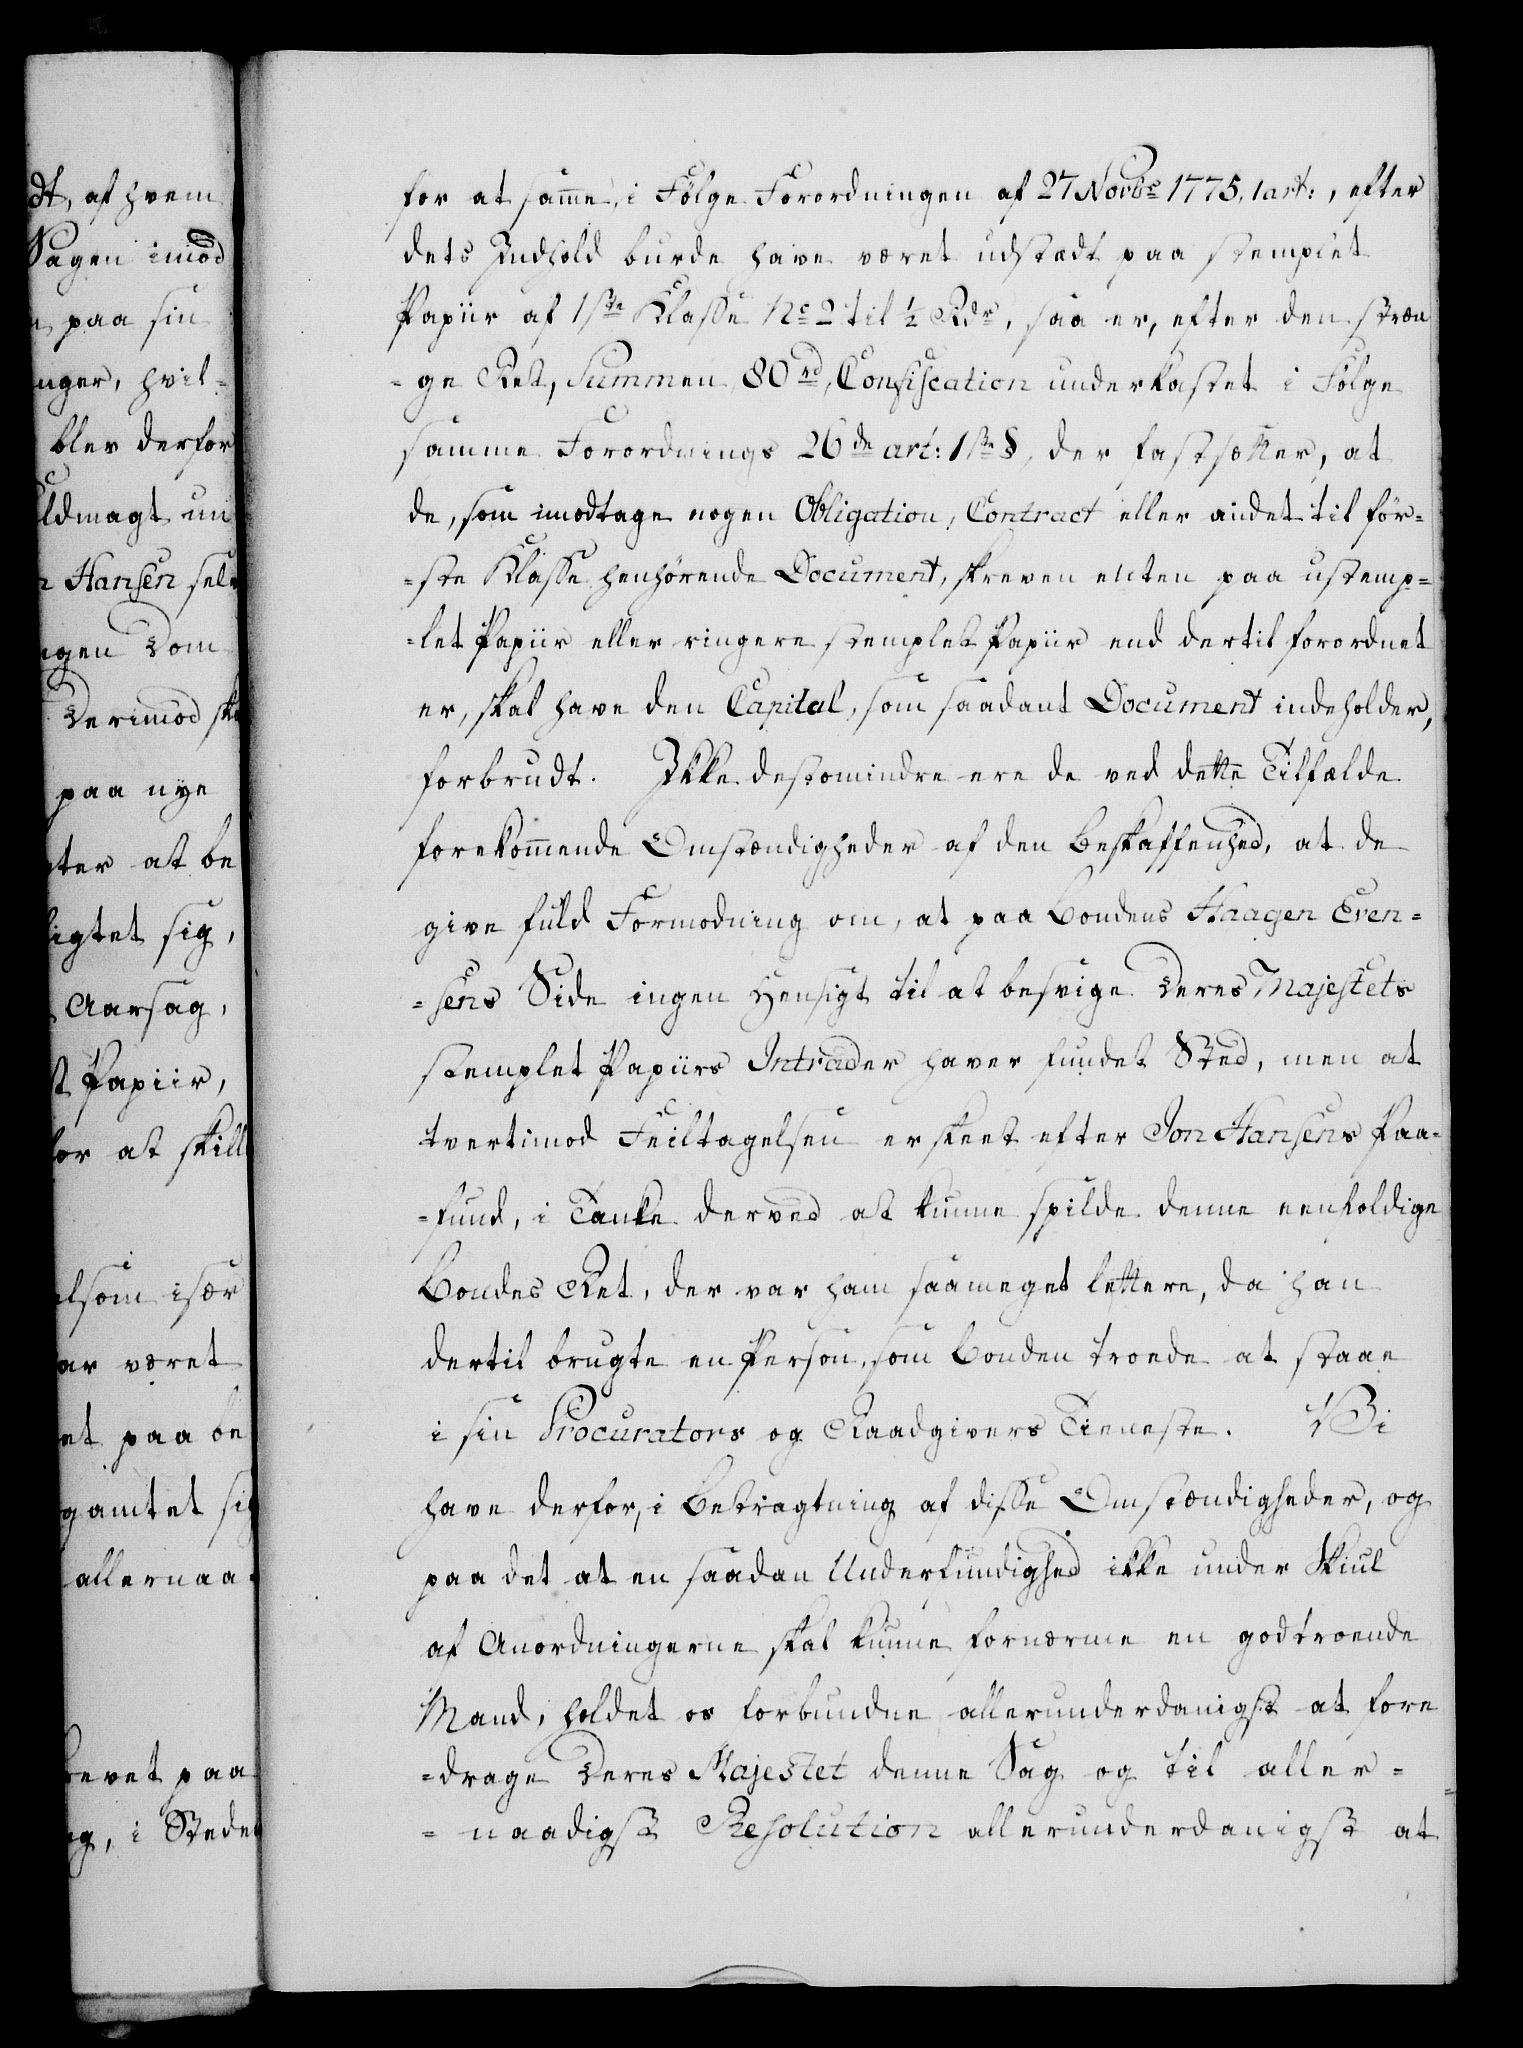 dt, af hvem
Sagen imod
paa sin
nger, hvil-
blev derfor
ldmagt un
n Hansen selv
ngen Dom
Derimod sk
paa nye
ter at be
igtet sig,
Aarsag,
t Papiir,
for at skill
elsom især
ar været
et paa be
gamtet sig
allernaa
revet paa
g, i Stedet
for at sam̄e, i Følge Forordningen af 27 Novbr 1775, 1 art:, efter
dets Indhold burde have været udstædt paa stemplet
Papiir af 1ste Klasse No 2 til ½ Rdr, saa er, efter den stræn
=ge Ret, Summen 80 rd, Confiscation underkastet i Følge
samme Forordnings 26de art: 1ste §, der fastsætter, at
de, som imodtage nogen Obligation, Contract eller andet til før=
=ste Klasse henhørende Document, skreven enten paa ustemp=
=let Papiir eller ringere stemplet Papiir end dertil forordnet
er, skal have den Capital, som saadant Document indeholder,
forbrudt. Ikke destomindre ere de ved dette Tilfælde
forekom̄ende Omstændigheder af den Beskaffenhed, at de
give fuld Formodning om, at paa Bondens Haagen Even=
=sens Side ingen Hensigt til at besvige Deres Majestets
stemplet Papiirs Intrader haver fundet Sted, men at
tvertimod Feiltagelsen er skeet efter Jon Hansens Paa=
=fund, i Tanke derved at kunne spilde denne eenfoldige
Bondes Ret, der var ham saameget lettere, da han
dertil brugte en Person, som Bonden troede at staae
i sin Procurators og Raadgivers Tieneste. Vi
have derfor, i Betragtning af disse Omstændigheder, og
paa det at en saadan Underfundighed ikke under Skiul
af Anordningerne skal kunne fornærme en godtroende
Mand, holdet os forbundne allerunderdanigst at fore
=drage Deres Majestet denne Sag og til aller=
=naadigst Resolution allerunderdanigst at